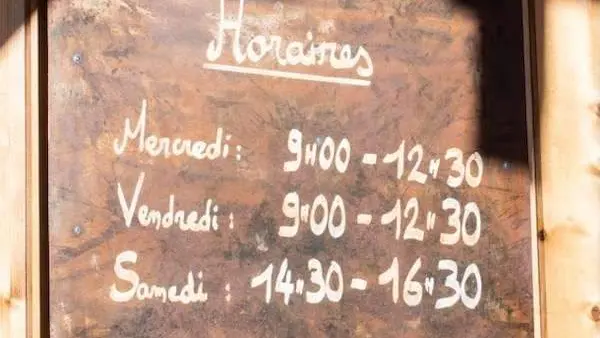 Horaires
Mercredi : 9H00 - 12H30
Vendredi : 9H00 - 12H30
Samedi : 14H30 - 16H30